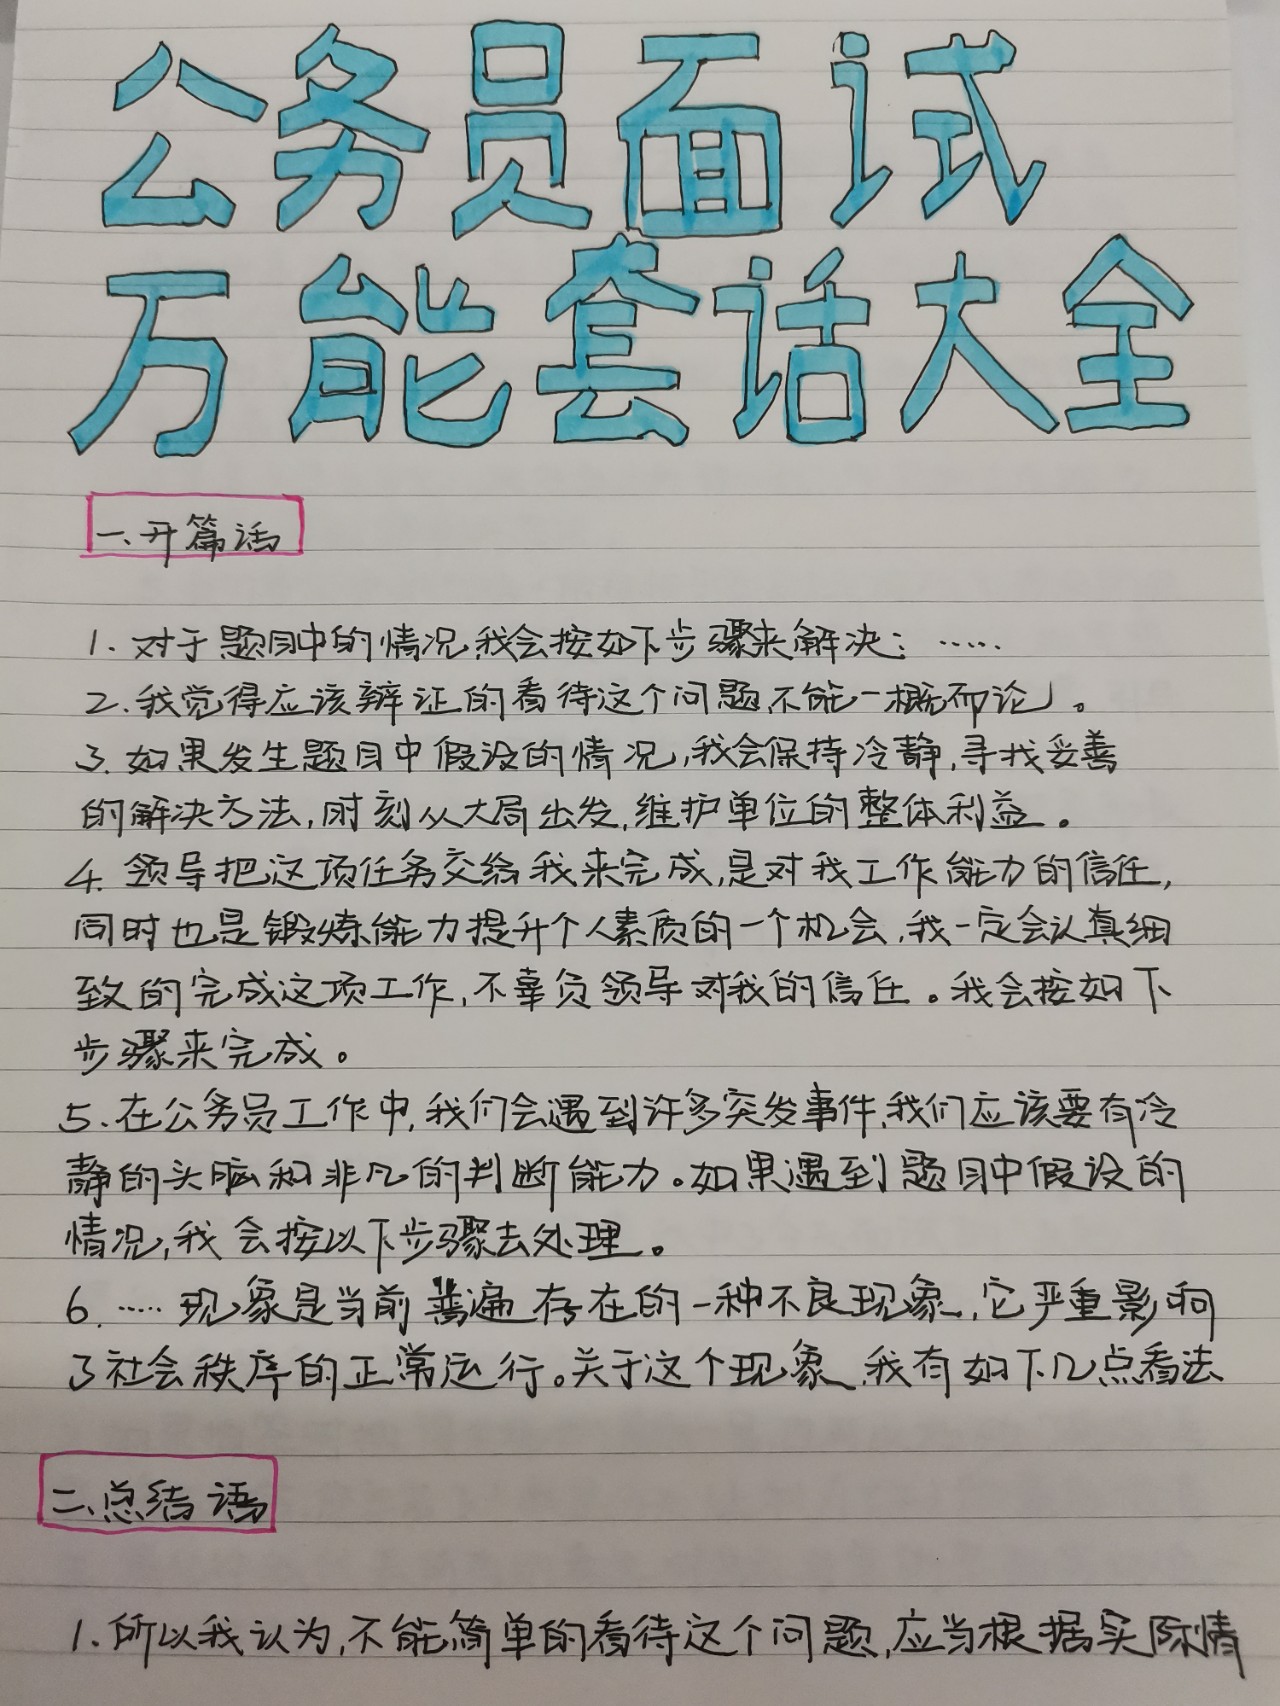 公务员面试
万能套话大全
一、开篇话
1.对于题目中的情况,我会按如下步骤来解决：……
2.我觉得应该辩证的看待这个问题,不能一概而论」。
3.如果发生题目中假设的情况,我会保持冷静,寻找妥善
的解决方法,时刻从大局出发,维护单位的整体利益。
4.领导把这项任务交给我来完成,是对我工作能力的信任,
同时也是锻炼能力提升个人素质的一个机会,我一定会认真细
致的完成这项工作,不辜负领导对我的信任。我会按如下
步骤来完成。
5.在公务员工作中,我们会遇到许多突发事件,我们应该要有冷
静的头脑和非凡的判断能力。如果遇到题目中假设的
情况,我会按以下步骤去处理。
6.……现象是当前普遍存在的一种不良现象,它严重影响
了社会秩序的正常运行。关于这个现象,我有如下几点看法
二、总结语
1.所以我认为,不能简单的看待这个问题,应当根据实际情